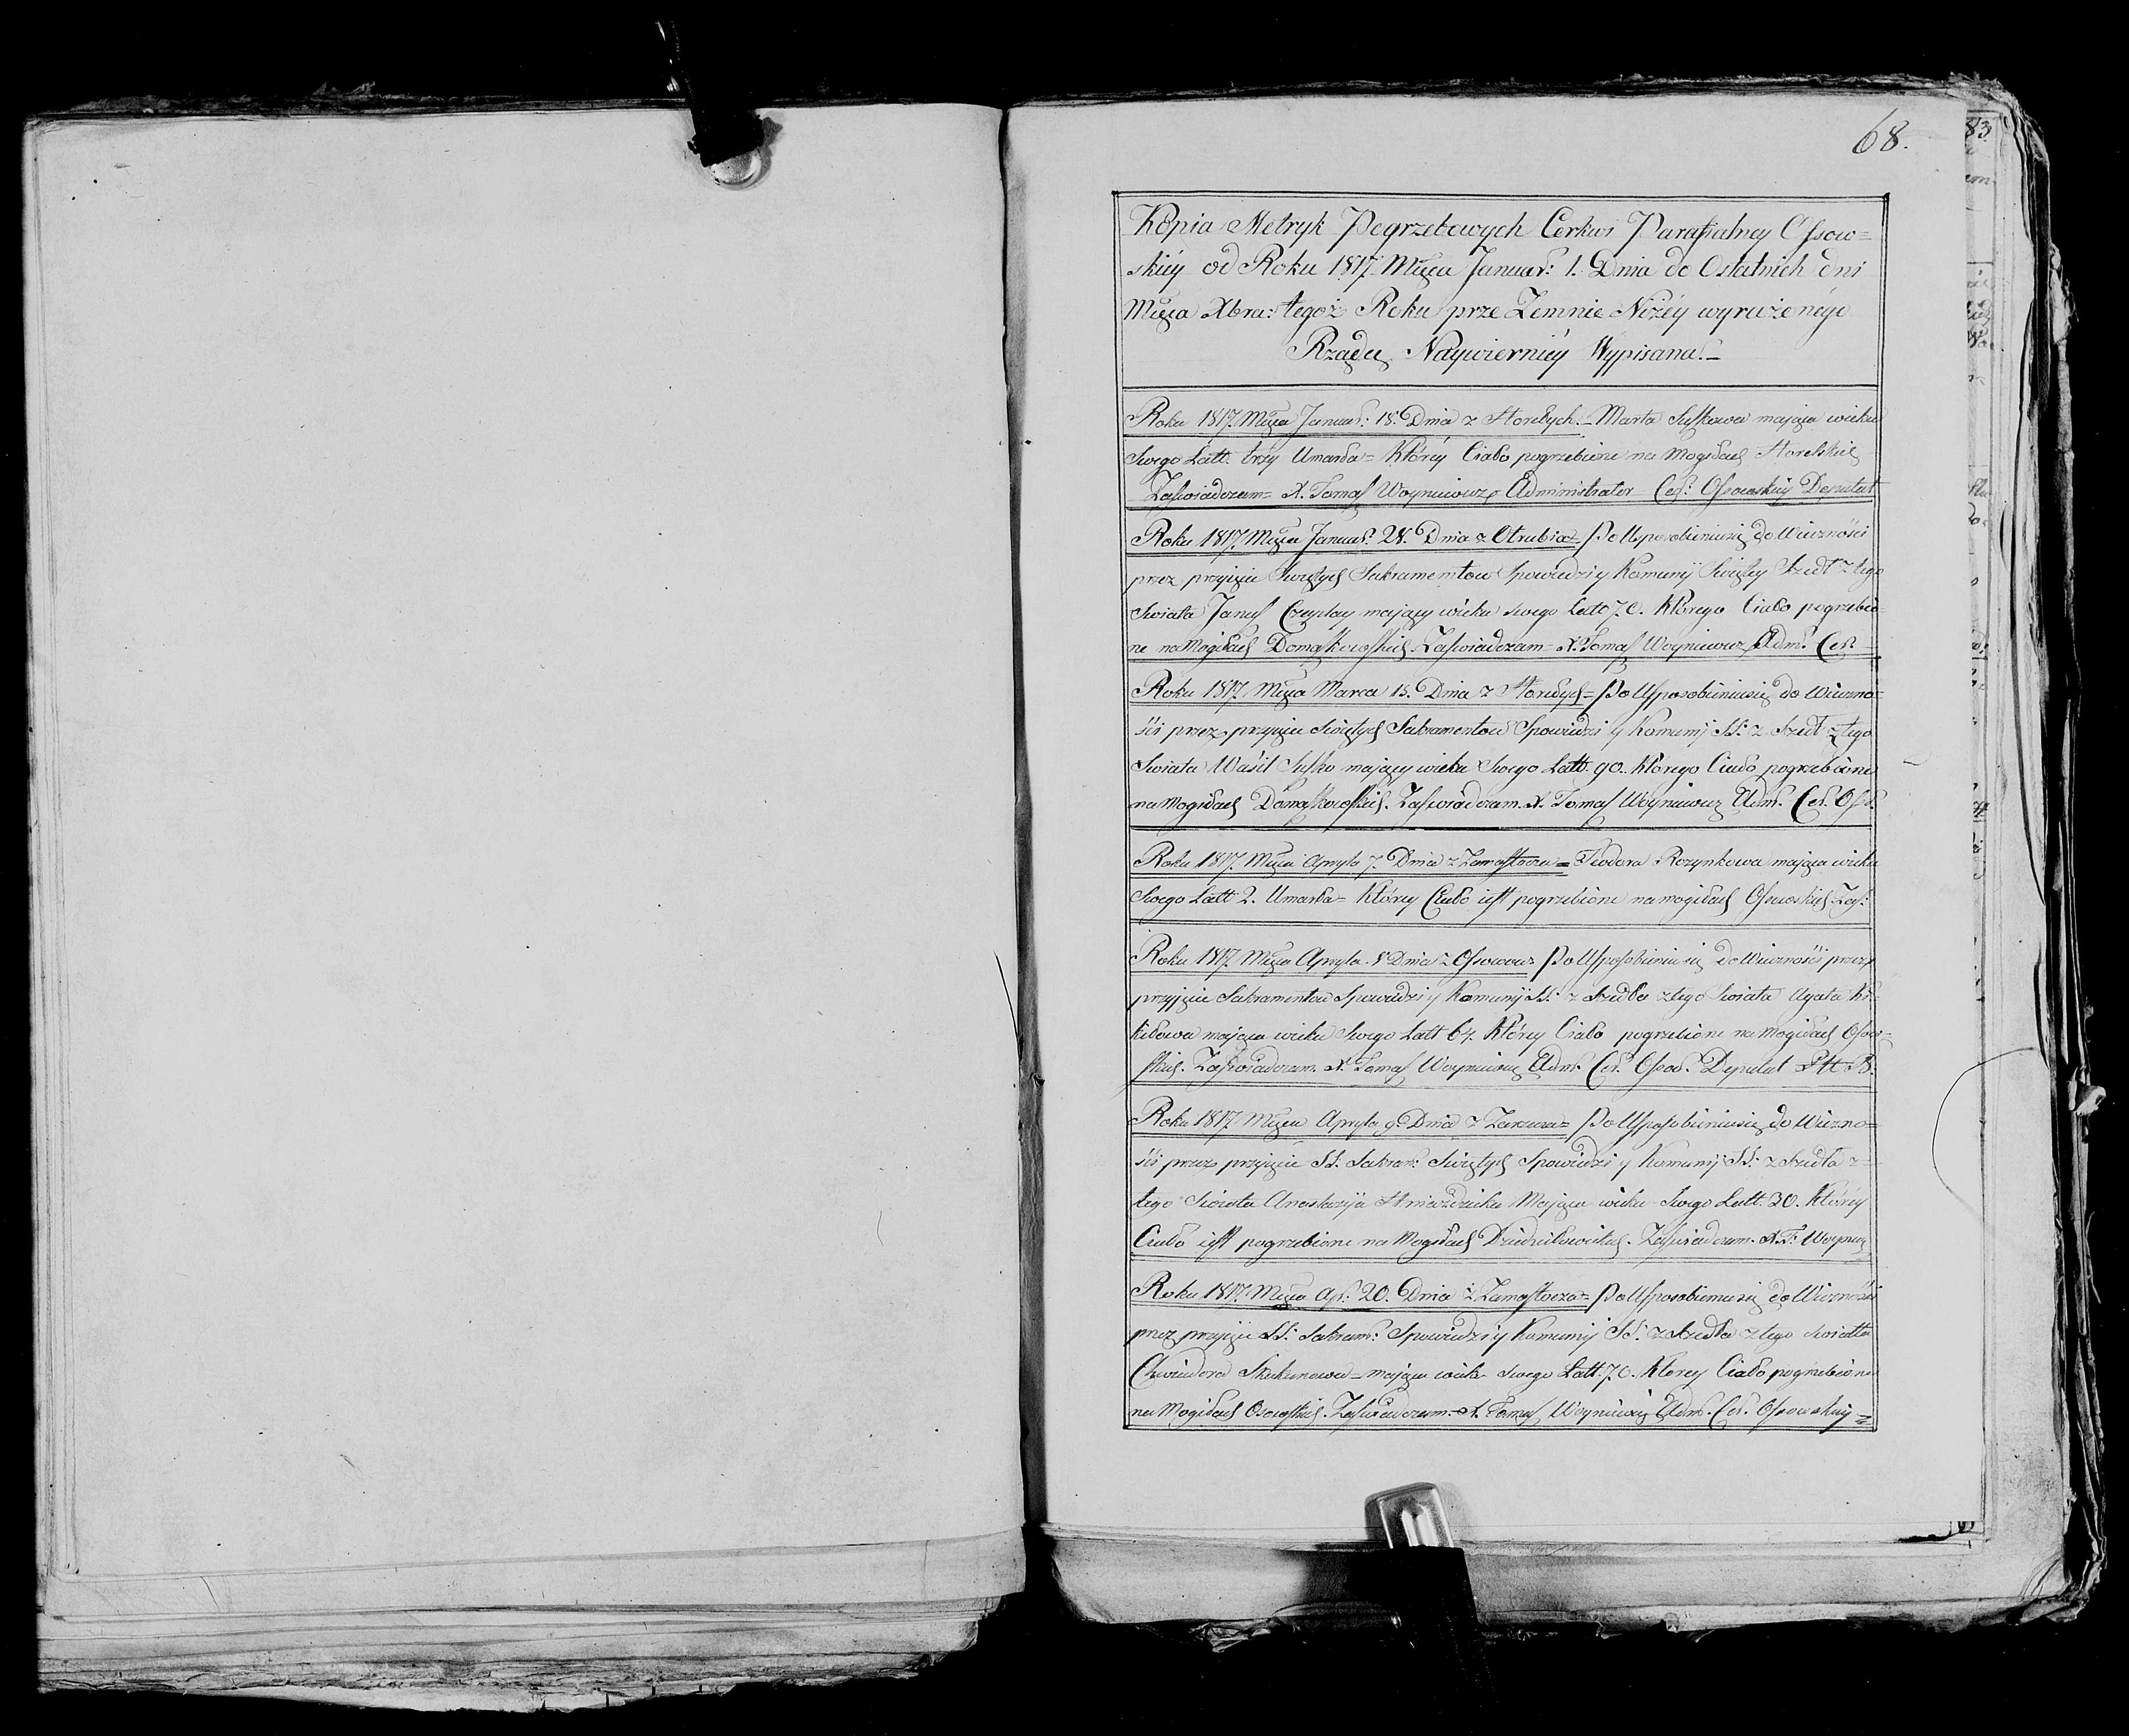 68.
Kopia Metryk Pogrzebowych Cerkwi Parafialney Ossow=
skiéy od Roku 1817 Mięca Januar: 1. Dnia do Ostatnich dni
Mięca Xbra: tegoż Roku prze Zemnie Niżéy wyrażonégo
Rządu Naywiernéy Wypisana.
Roku 1817. Mięca Januar: 18. Dnia z Horełych. Marta Suszkowa mająca wieku
Swego Latt. trzy Umarła = Któréy Ciało pogrzebione na Mogiłach Horelskich
Zaswiadczam = X. Tomasz Woyniewicz Administrator Cer: Ossowskiéy Deputat
Roku 1817. Mięca Januar: 28. Dnia z Otrubia = Po Usposobieniusię do Wieczności
przez przyięcie Swiętych Sakramentow Spowiedzi y Komunij Swiętey Szedł z tego
Swiata Janusz mający wieku swego Latt 70. Którego Ciało pogrzebio=
ne na Mogiłach Zaswiadczam = X. Tomasz Woyniewicz Adm: Cer:
Roku 1817. Mięca Marca 15. Dnia z Horełych = Po Usposobieniusię do Wieczno=
ści przez przyięcie swiętych Sakramentow Spowiedzi y Komunij SS: z Szedł z tego
Swiata Waśil Suszko mający wieku Swego Latt. 90. Którego Ciało pogrzebione
na Mogiłach Zaswiadczam. X. Tomasz Woyniewicz Adm: Cer: Oss:
Roku 1817. Mięca Apryla 7. Dnia z Zamosztocza = Teodora Rozynkowa mająca wieku
Swego Latt 2. Umarła = Któréy Ciało iest pogrzebione na mogiłach Ossowskich. Zas:
Roku 1817. Mięca Apryla 8 Dnia z Ossowow Po Usposobieniusię do Wieczności przez
przyięcie Sakramentow Spowiedzi y Komunij SS: z Szedła z tego Swiata Agata
mająca wieku Swego Latt 64. Któréy Ciało pogrzebione na Mogiłach Ossow=
skich. Zaswiadczam. X. Tomasz Woyniewicz Adm: Cer: Ossow: Deputat
Roku 1817. Mięca Apryla 9. Dnia z Zarzecza = Po Usposobieniusię do Wieczno=
ści przez przyięcie SS. Sakram: Swiętych Spowiedzi y Komunij SS: z Szedła z
tego Swiata Anastazija Mająca wieku Swego Latt. 30. Któréy
Ciało iest pogrzebione na Mogiłach Zaswiadczam. X. T:
Roku 1817. Mięca Ap: 20. Dnia z Zamosztocza = Po Usposobieniusię do Wieczności
przez przyięcie SS: Sakram: Spowiedzi y Komunij SS: z Szedła z tego swiata
Skakunowa = mająca wieku swego Latt. 70. Którey Ciało pogrzebione
na Mogiłach Osowskich. Zaswiadczam. X. Tomasz Woyniewicz Adm: Cer: Ossowskiéy =